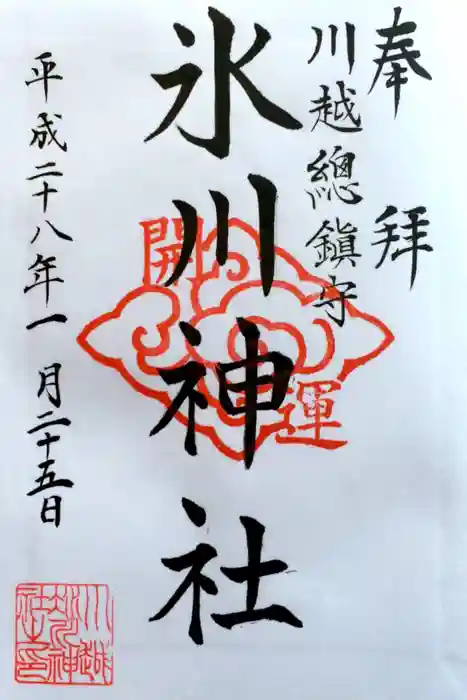 奉拝
川越總鎮守
氷川神社
開運
平成二十八年一月二十五日
川越氷川神社之印